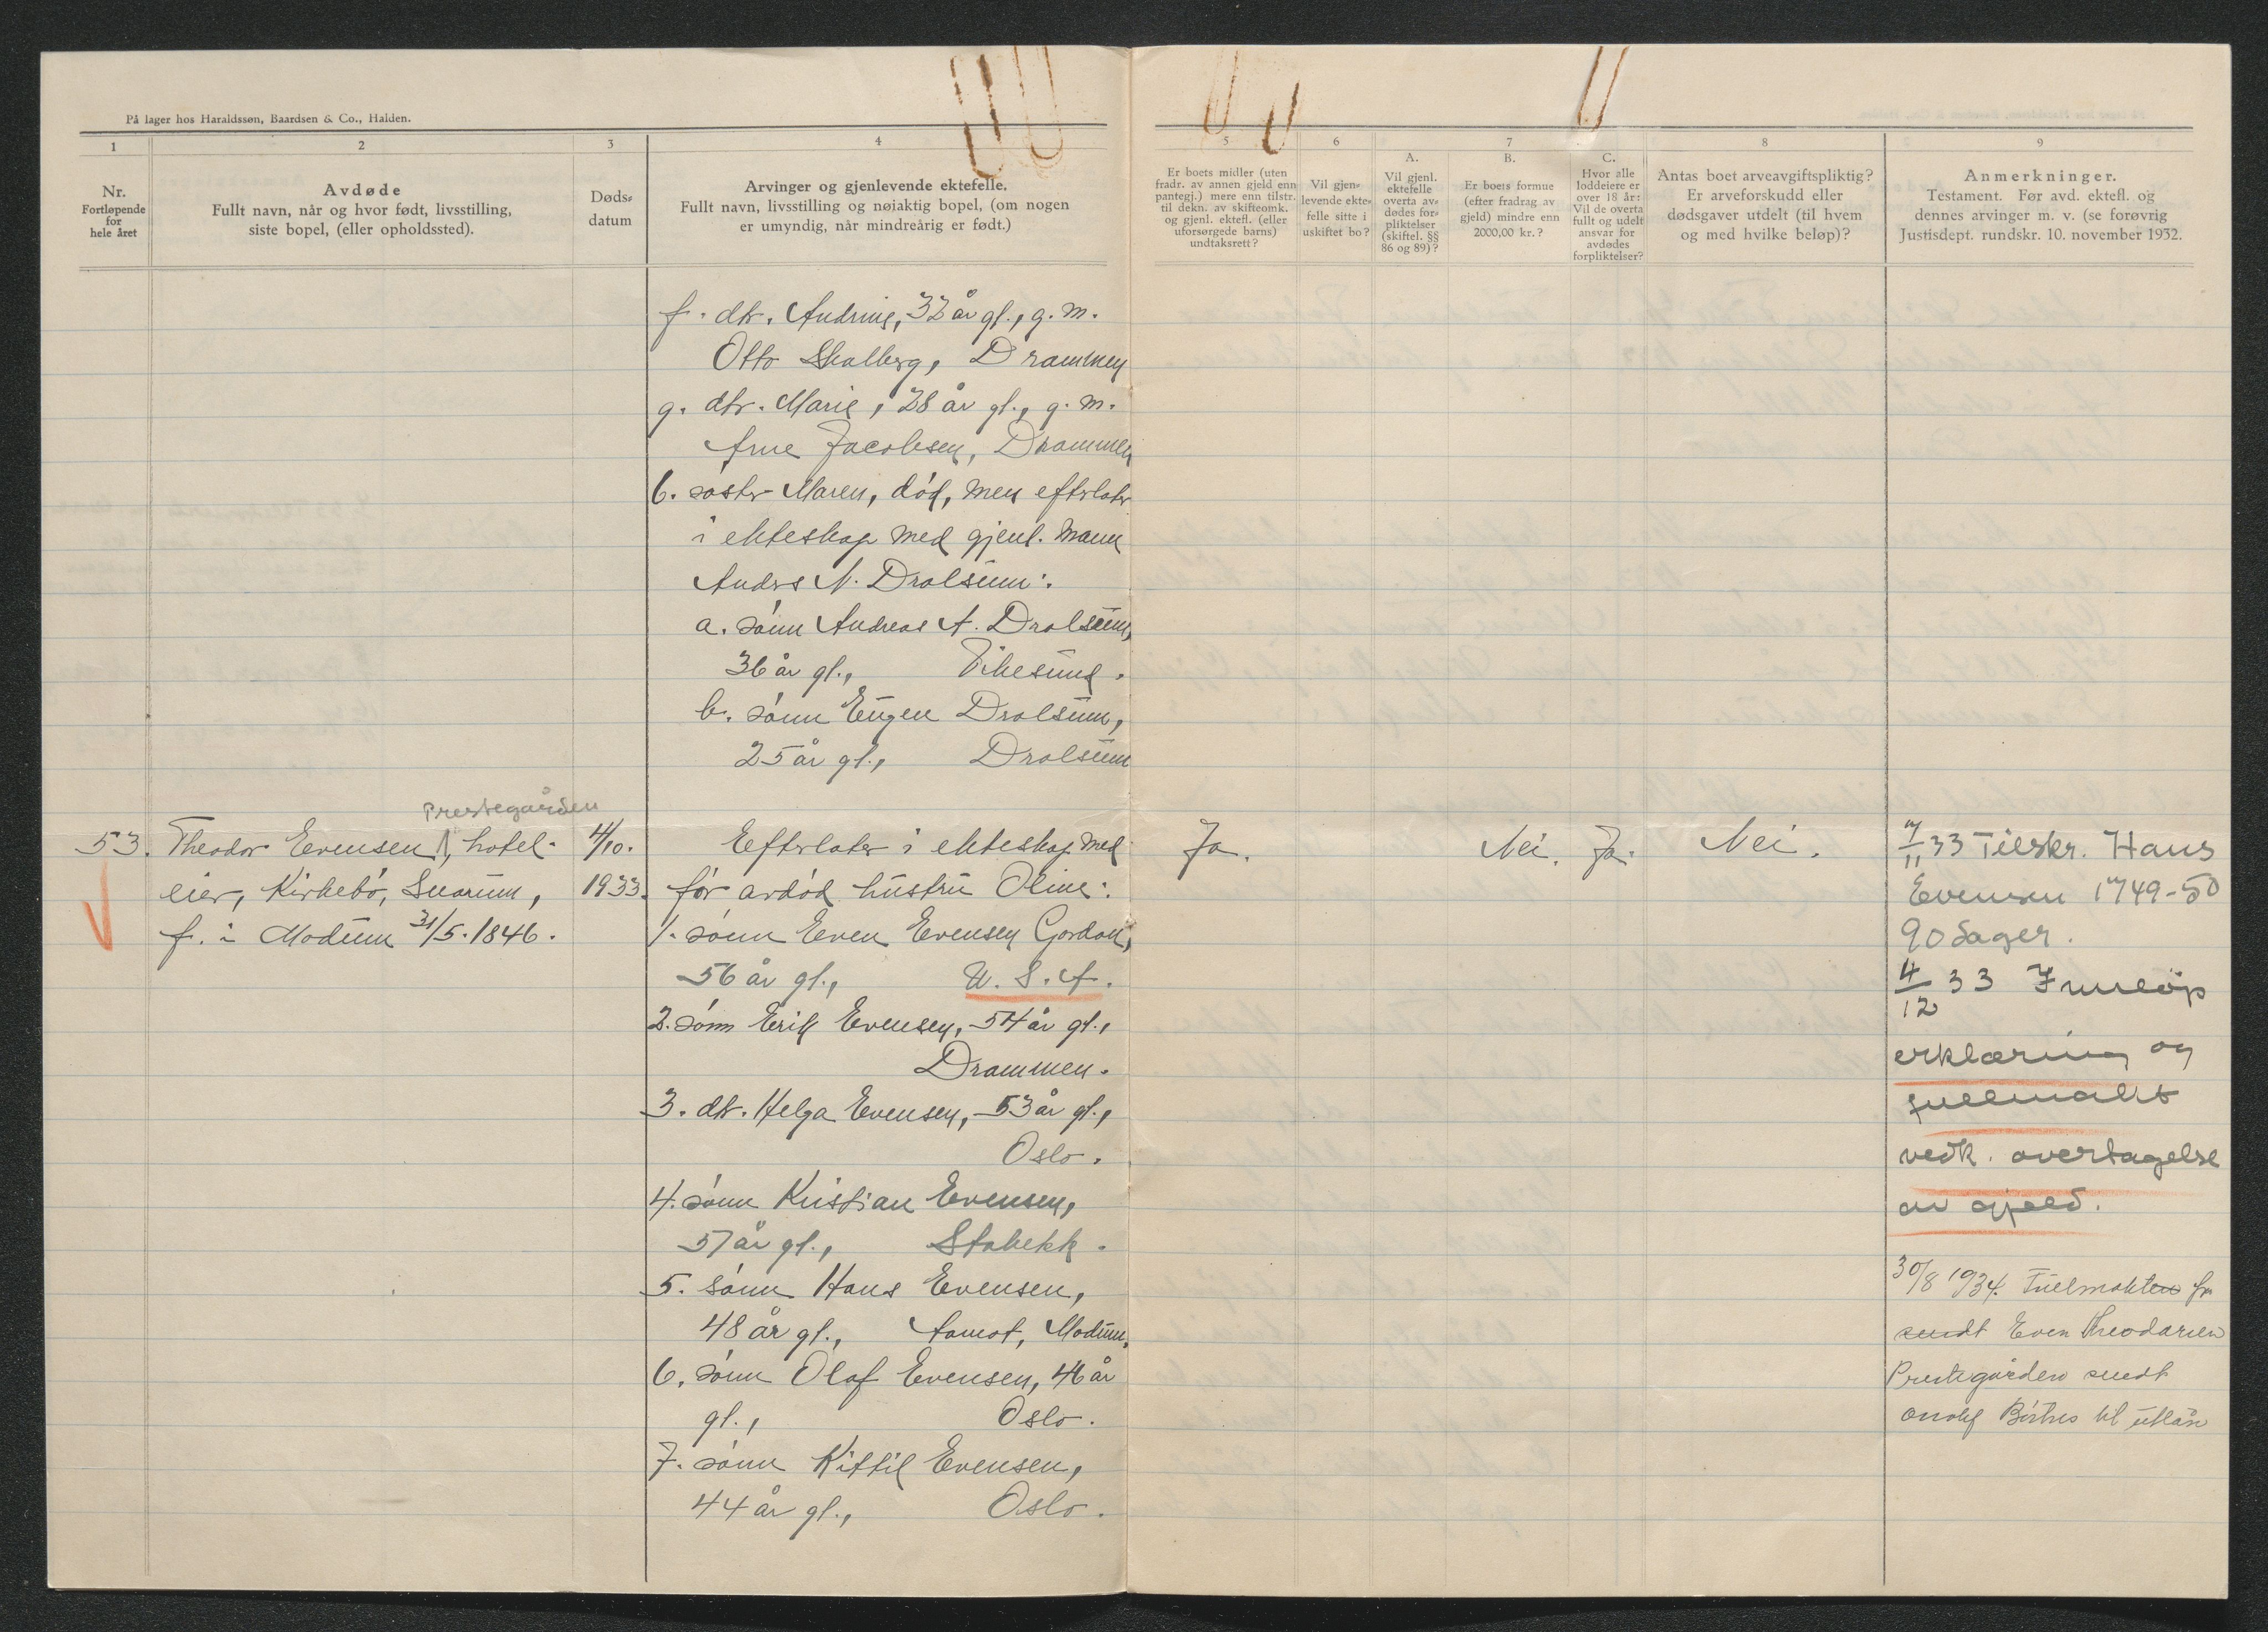 På lager hos Haraldssøn, Baardsen & Co., Halden.
1
2
3
4
5
6
7
8
9
Nr.
Fortløpende
for
hele året
Avdøde
Fullt navn, når og hvor født, livsstilling,
siste bopel, (eller opholdssted).
Døds-
datum
Arvinger og gjenlevende ektefelle.
Fullt navn, livsstilling og nøiaktig bopel, (om nogen
er umyndig, når mindreårig er født.)
Er boets midler (uten
fradr. av annen gjeld enn
pantegj.) mere enn tilstr.
til dekn. av skifteomk.
og gjenl. ektefl. (eller
uforsørgede barns)
undtaksrett?
Vil gjen-
levende ekte-
felle sitte i
uskiftet bo?
A.
Vil gjenl.
ektefelle
overta av-
dødes for-
pliktelser
(skiftel. §§
86 og 89)?
B.
Er boets formue
(efter fradrag av
gjeld) mindre enn
2000,00 kr.?
C.
Hvor alle
loddeiere er
over 18 år:
Vil de overta
fullt og udelt
ansvar for
avdødes
forpliktelser?
Antas boet arveavgiftspliktig?
Er arveforskudd eller
dødsgaver utdelt (til hvem
og med hvilke beløp)?
Anmerkninger.
Testament. Før avd. ektefl. og
dennes arvinger m. v. (se forøvrig
Justisdept. rundskr. 10. november 1932.
f. dtr. Andrine, 32 år gl., g. m.
Otto Skalberg, Drammen
g. dtr. Marie, 28 år gl., g. m.
Arne Jacobsen, Drammen
6. søster Maren, død, men efterlater
i ekteskap med gjenl. mann
Anders N. Drolsum:
a. sønn Andreas A. Drolsum,
36 år gl., Vikesund.
b. sønn Eugen Drolsum,
25 år gl., Drolsum
Prestegården
53. Theodor Evensen, hotel-
eier, Kirkebø, Snarum,
f. i Modum 31/5. 1846.
4/10.
1933.
Efterlater i ekteskap med
før avdød hustru Oline:
1. sønn Even Evensen Gordon,
56 år gl., U. S. A.
2. sønn Erik Evensen, 54 år gl.,
Drammen.
3. dtr. Helga Evensen, 53 år gl.,
Oslo.
4. sønn Kristian Evensen,
51 år gl., Stabekk.
5. sønn Hans Evensen,
48 år gl., Åmot, Modum.
6. sønn Olaf Evensen, 46 år
gl., Oslo.
7. sønn Kittil Evensen,
44 år gl., Oslo.
Ja.
Nei. Ja.
Nei.
7/11 33 Tilskr. Hans
Evensen 1749-50
90 dager.
4/12 33 Innløp
erklæring og
fullmakt
vedk. overtagelse
av gjeld.
30/8 1934. Fullmakten fra
sendt Even Theodorsen
Prestegården sendt
til utlån